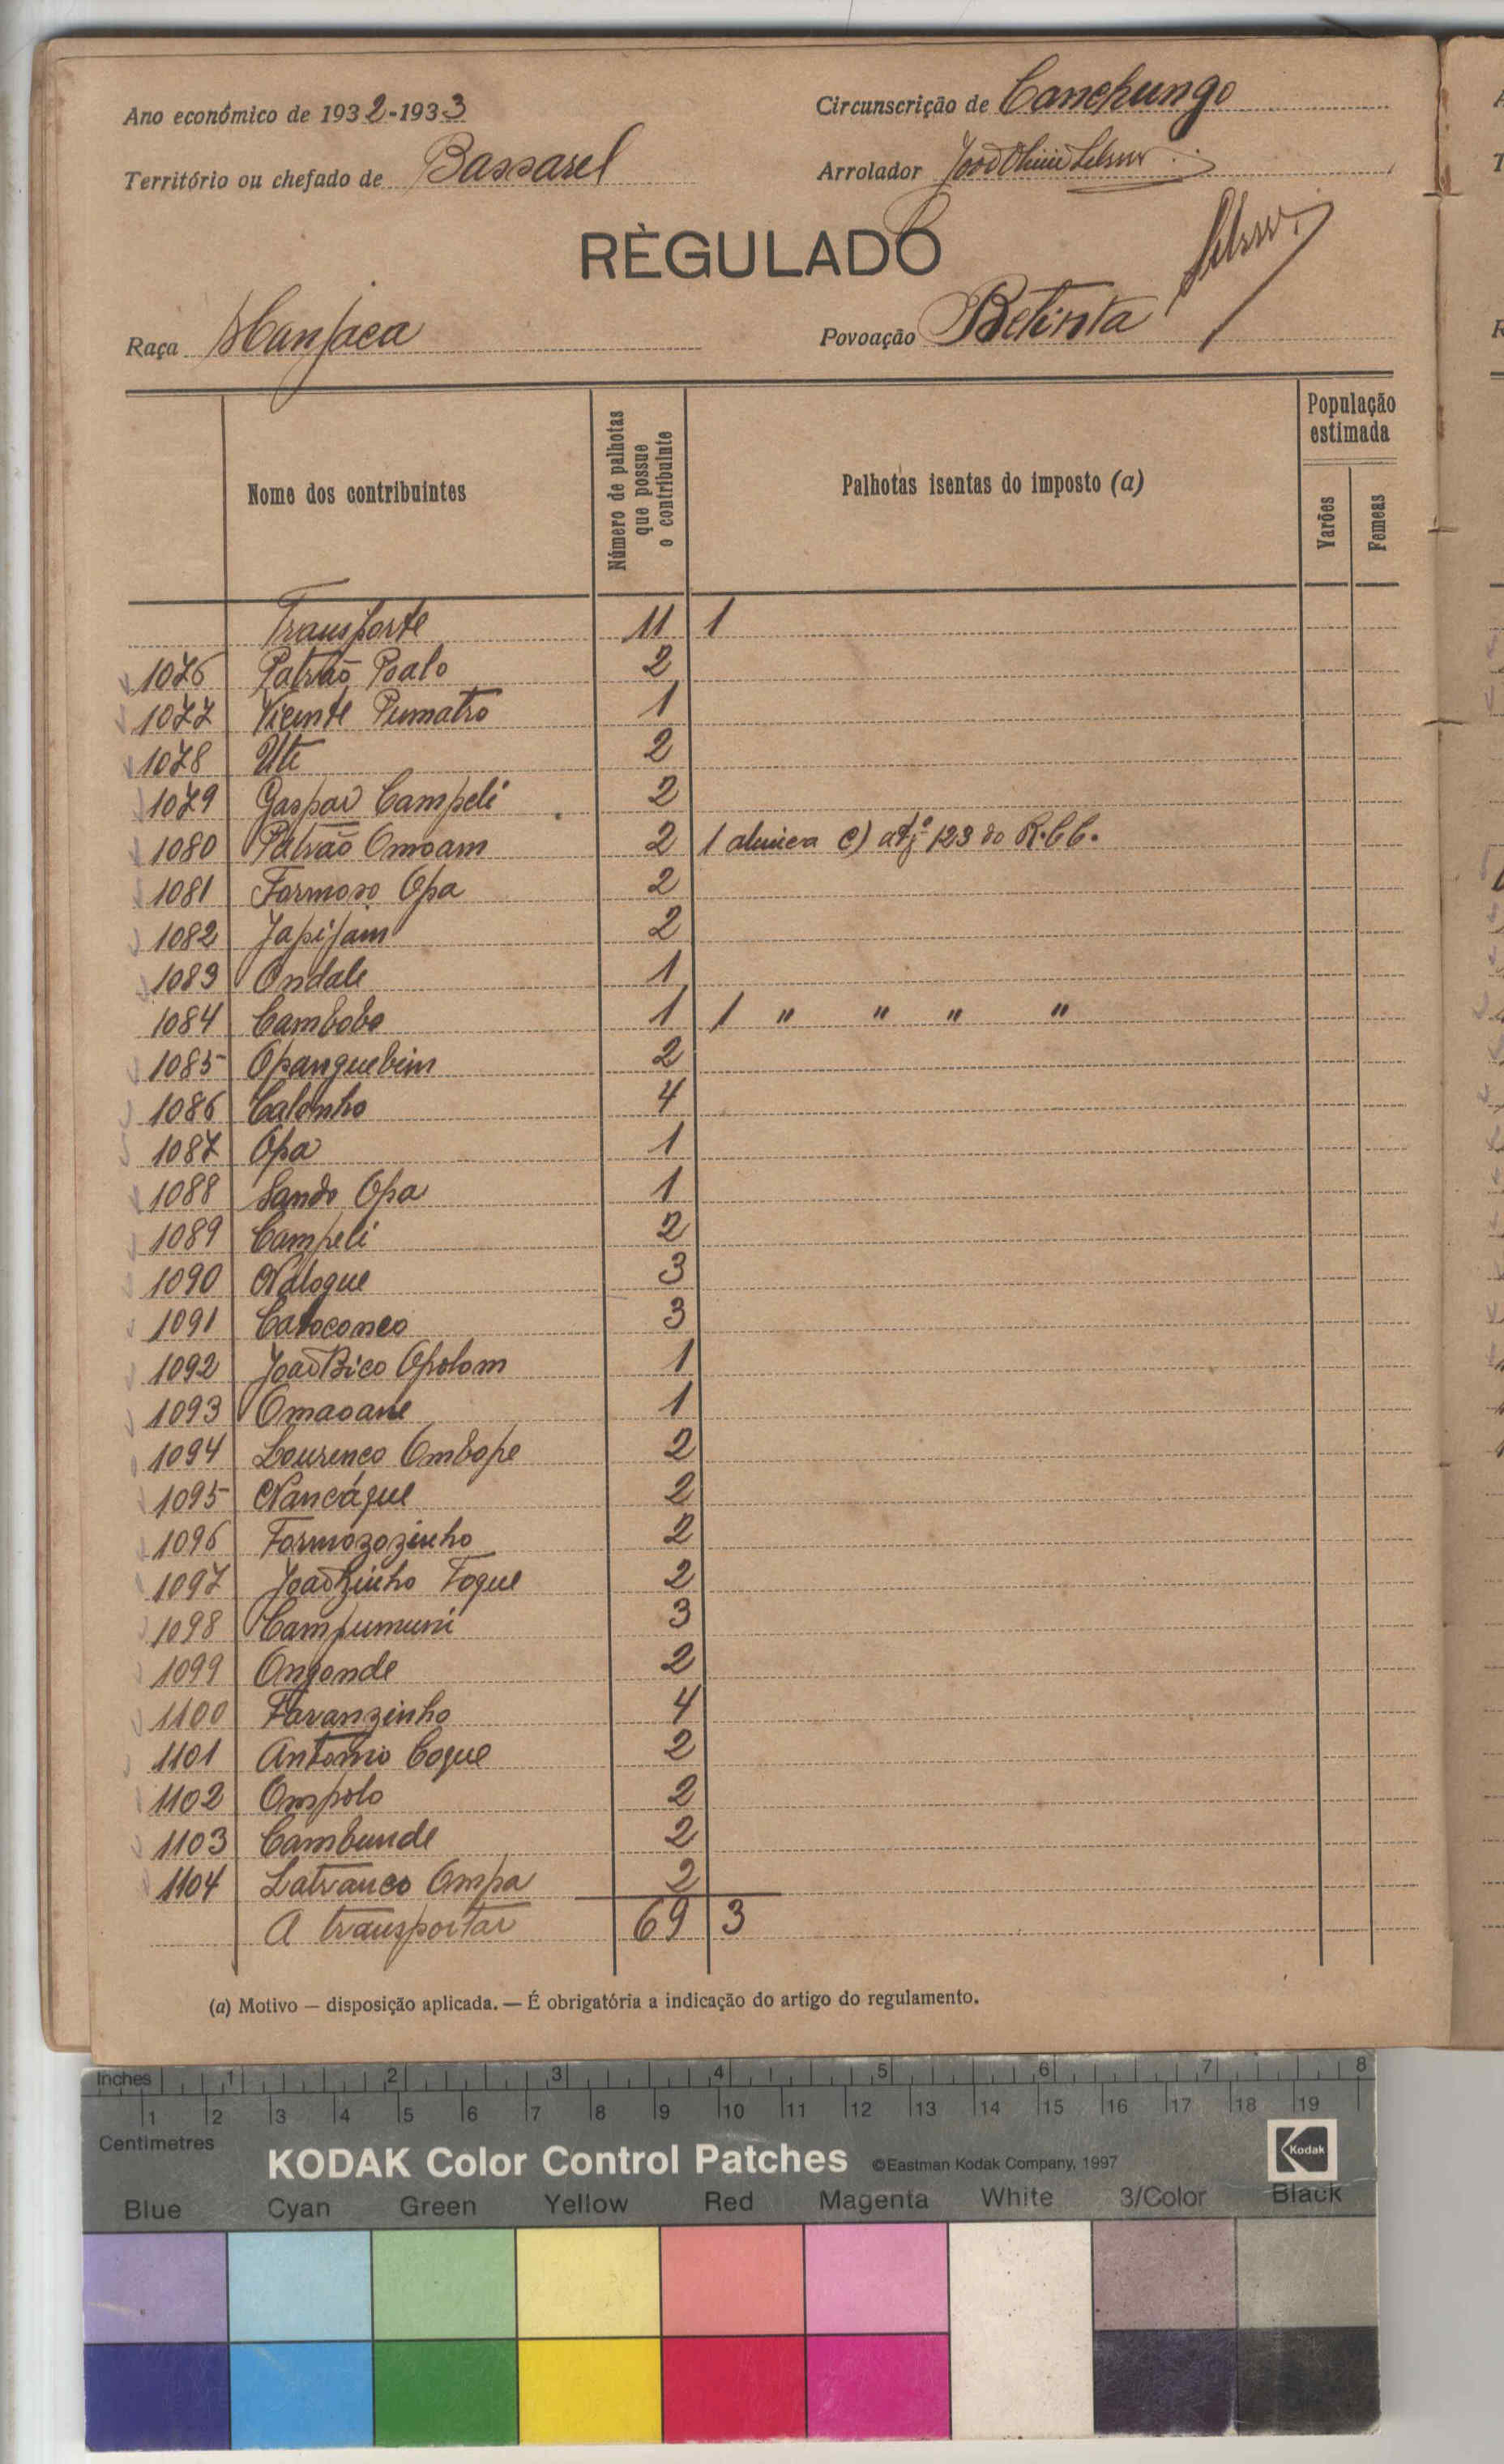 Ano económico de 1932-1933
Circunscrição de Canchungo
Território ou chefado de Bassarel
Arrolador
RÈGULADO
Raça Manjaca
Povoação Betinta
Nome dos contribuintes
Número de palhotas que possue o contribuinte
Palhotas isentas do imposto (a)
População estimada
Varões
Femeas
Transporte 11 1
1076 Patrão Poalo 2
1077 Vicente Pumatro 1
1078 Ute 2
1079 Gaspar Campeli 2
1080 Patrão Omoam 2 1 alinea c) artº 123 do R.C.C.
1081 Formoso Opa 2
1082 Japijam 2
1083 Ondale 1
1084 Cambobo 1 1 " " " "
1085 Opanguebim 2
1086 Calonho 4
1087 Opa 1
1088 Sando Opa 1
1089 Campeli 2
1090 Naloque 3
1091 3
1092 João Bico Opolom 1
1093 Omaoane 1
1094 Lourenco Ombope 2
1095 Nancáque 2
1096 Formozozinho 2
1097 Joãozinho Toque 2
1098 Campumuni 3
1099 Ongonde 2
1100 Favanzinho 4
1101 Antonio Coque 2
1102 Ompolo 2
1103 Cambunde 2
1104 Latranco Ompa 2
A transportar 69 3
(a) Motivo — disposição aplicada. — É obrigatória a indicação do artigo do regulamento.
Inches 1 2 3 4 5 6 7 8
1 2 3 4 5 6 7 8 9 10 11 12 13 14 15 16 17 18 19
Centimetres
KODAK Color Control Patches ©Eastman Kodak Company, 1997 Kodak
Blue Cyan Green Yellow Red Magenta White 3/Color Black